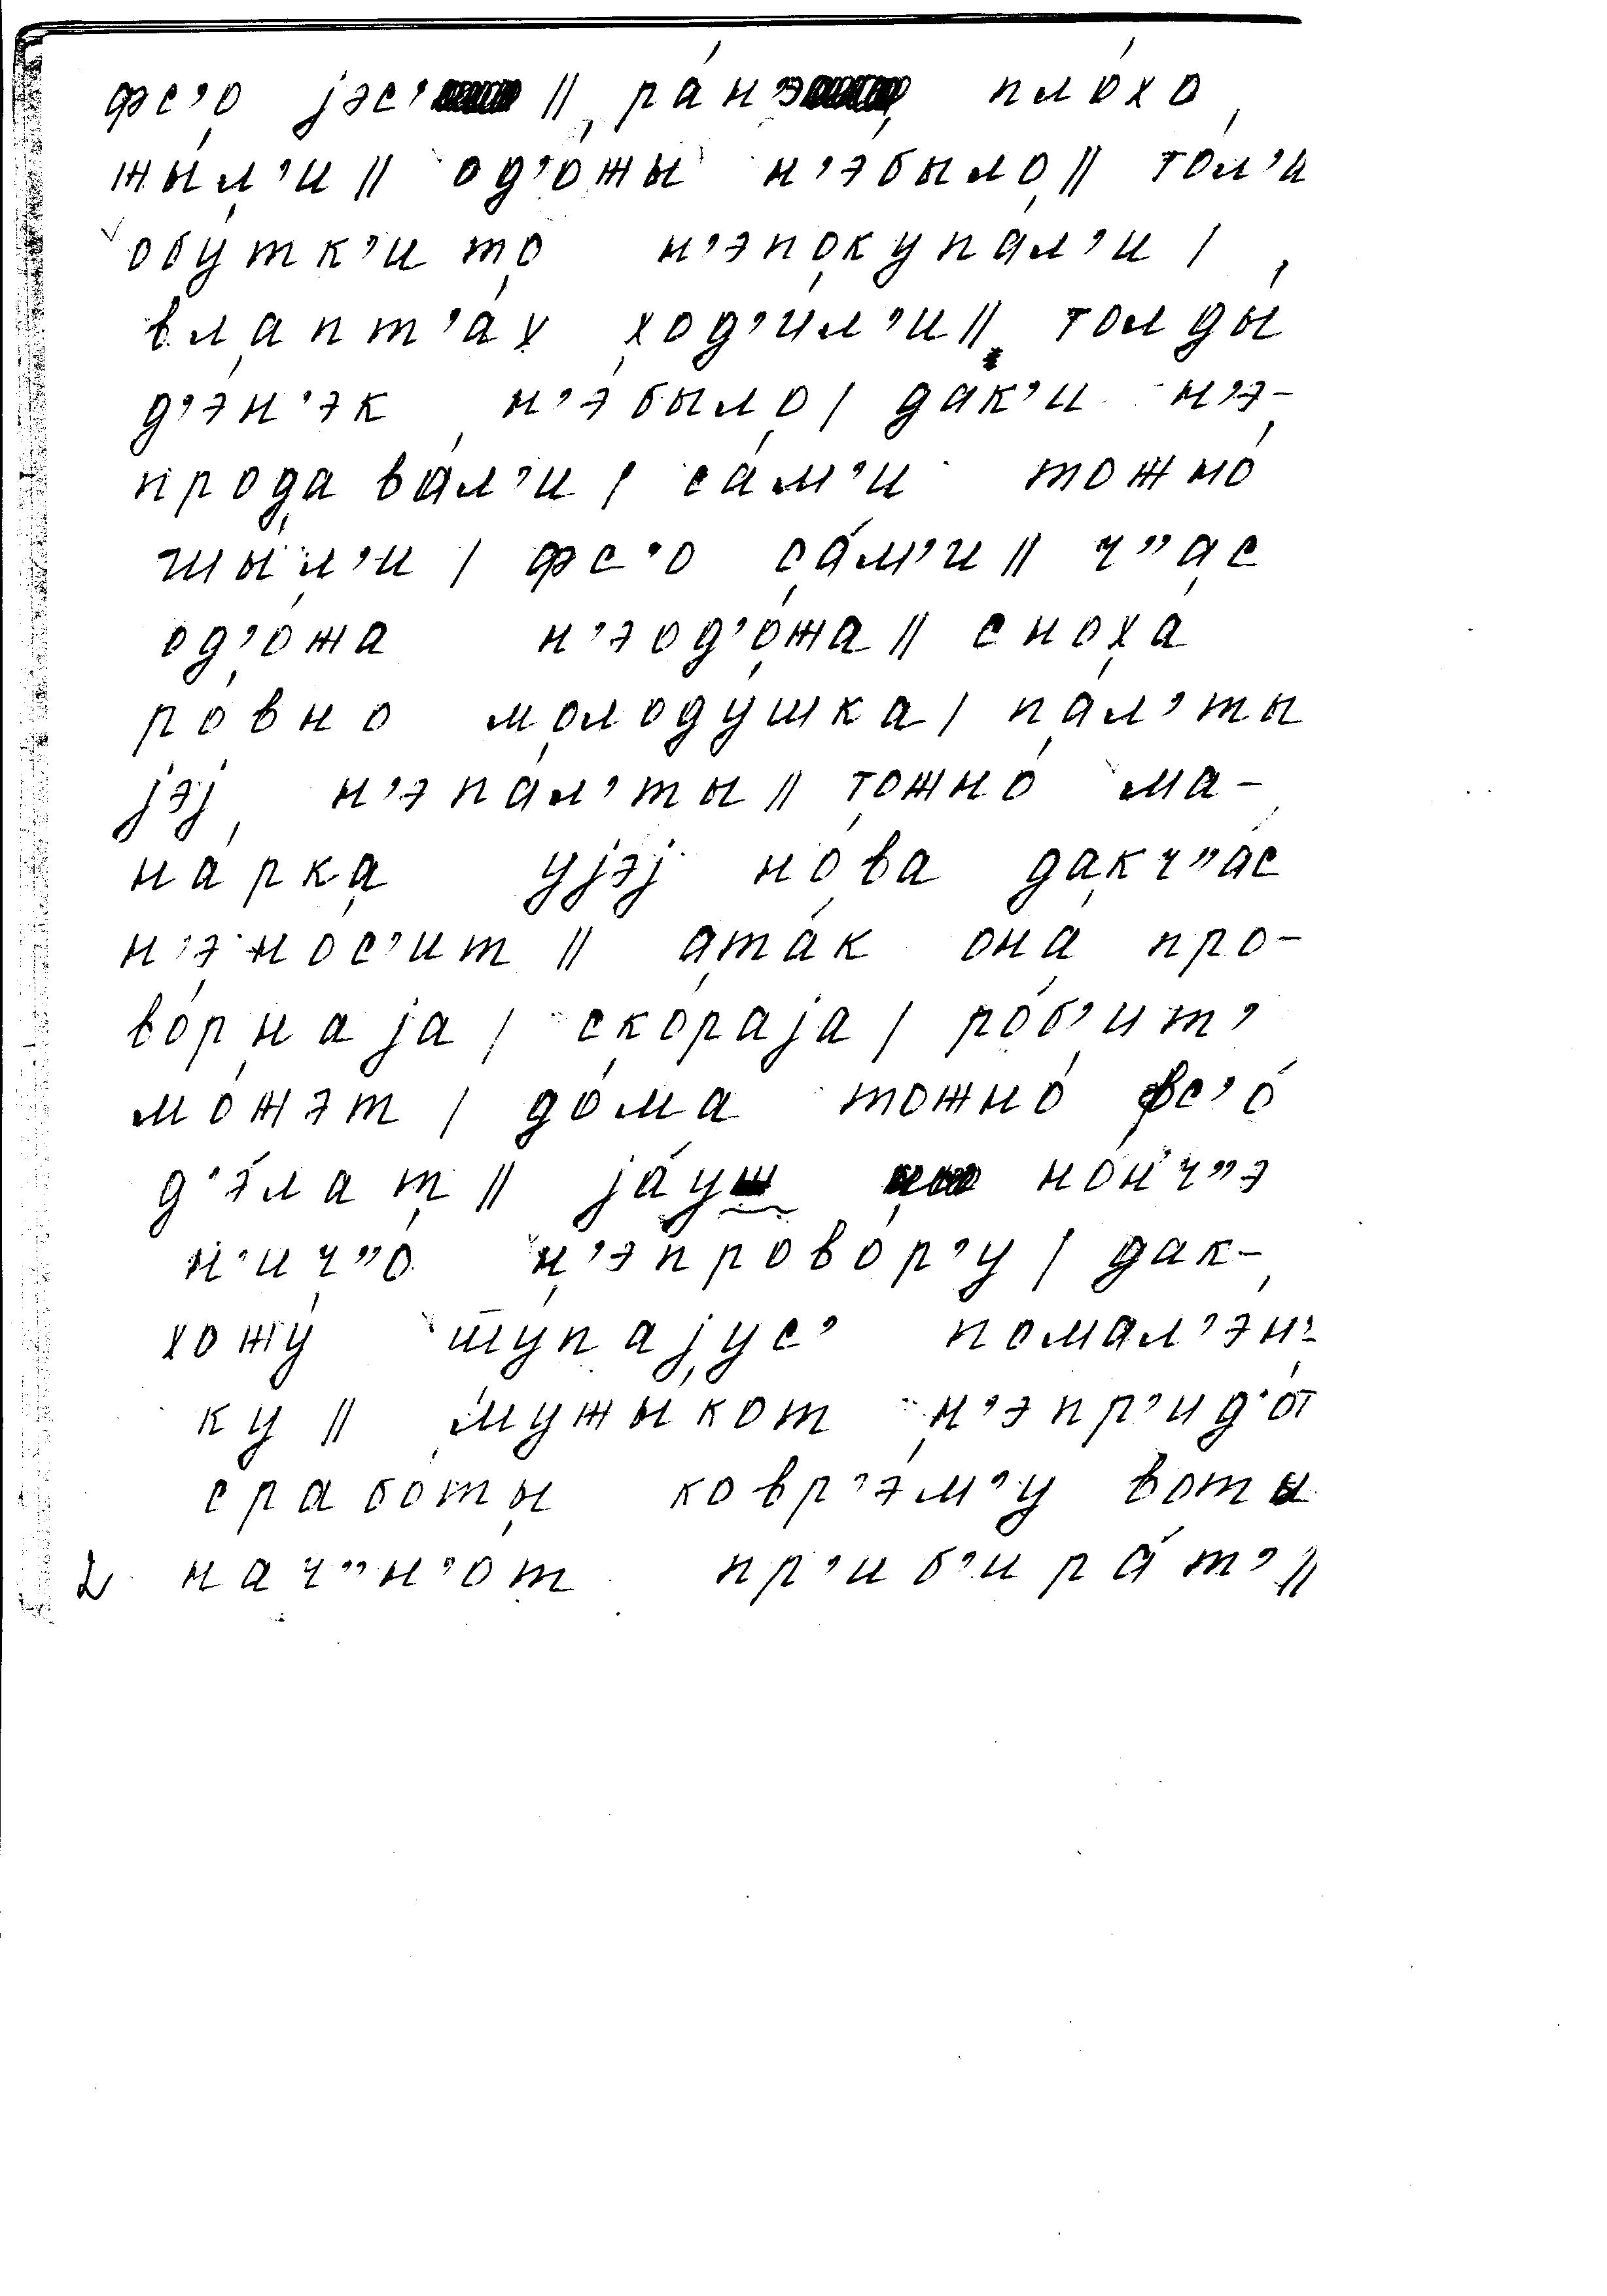 фс’о jэс’ || ра́н’э пло́хо
жы́л’и || од’о́жы н’э́было || тол’и
обу́тк’и то н’эпокупа́л’и |
влапт’а́х ход’и́л’и || толды́
д’э́н’эк н’э́было | дак’и н’э-
продава́л’и | са́м’и тожно́
шы́л’и | фс’о са́м’и || ч”ас
од’о́жа н’эод’о́жа || сноха́
ро́вно молоду́шка | па́л’ты
jэj н’эпа́л’ты || тожно́ ма-
на́рка уjэj но́ва дакч”а́с
н’эно́с’ит || ата́к она́ про-
во́рнаjа | ско́раjа | ро́б’ит’
мо́жэт | до́ма тожно́ фс’о́
д’э́лат || jа́уш но́н’ч”э
н’ич”о́ н’эпрово́р’у | дак-
хожу́ шу́паjус’ помал’эн’-
ку || мужы́кот н’эприд’о́т
срабо́ты ковр’э́м’у воты
2 нач”н’о́т пр’иб’ира́т’ ||